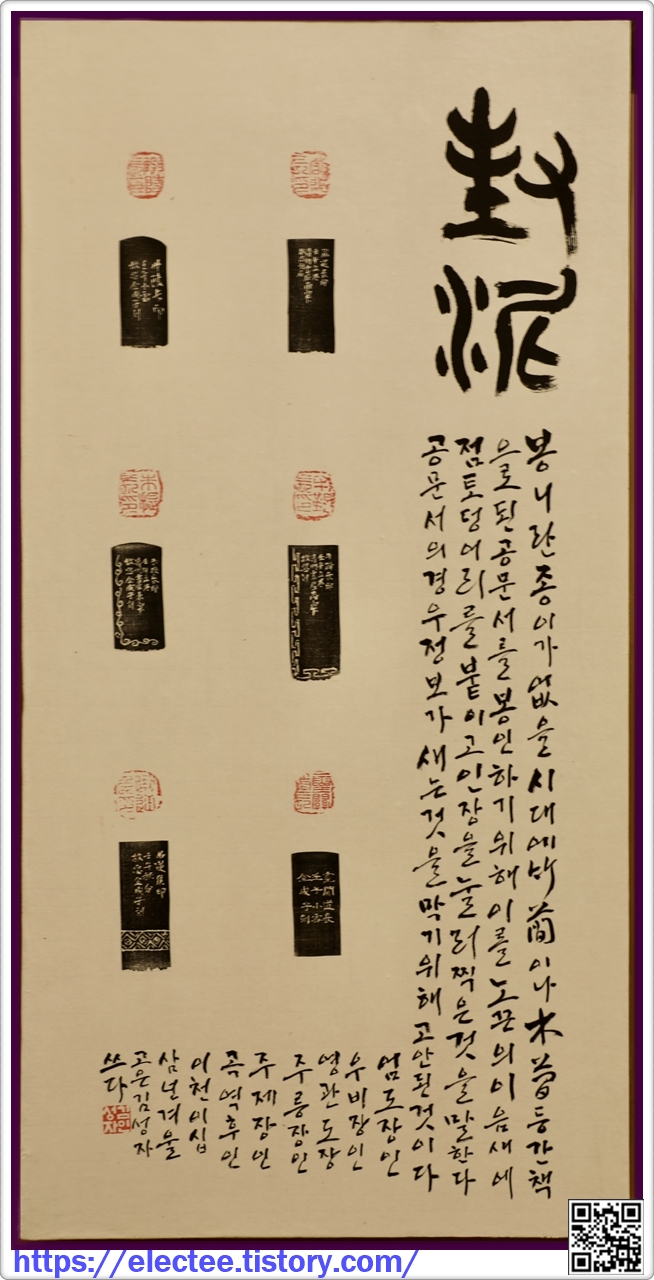 封泥
봉니란종이가없을시대에竹簡이나木簡등간책
으로된공문서를봉인하기위해이를노끈의이음새에
점토덩어리를붙이고인장을눌러찍은것을말한다
공문서의경우정보가새는것을막기위해고안된것이다
엄도장인
우비장인
영관도장
주릉장인
주제장인
곡역후인
이천이십
삼년겨울
고은김성자
쓰다
https://electee.tistory.com/